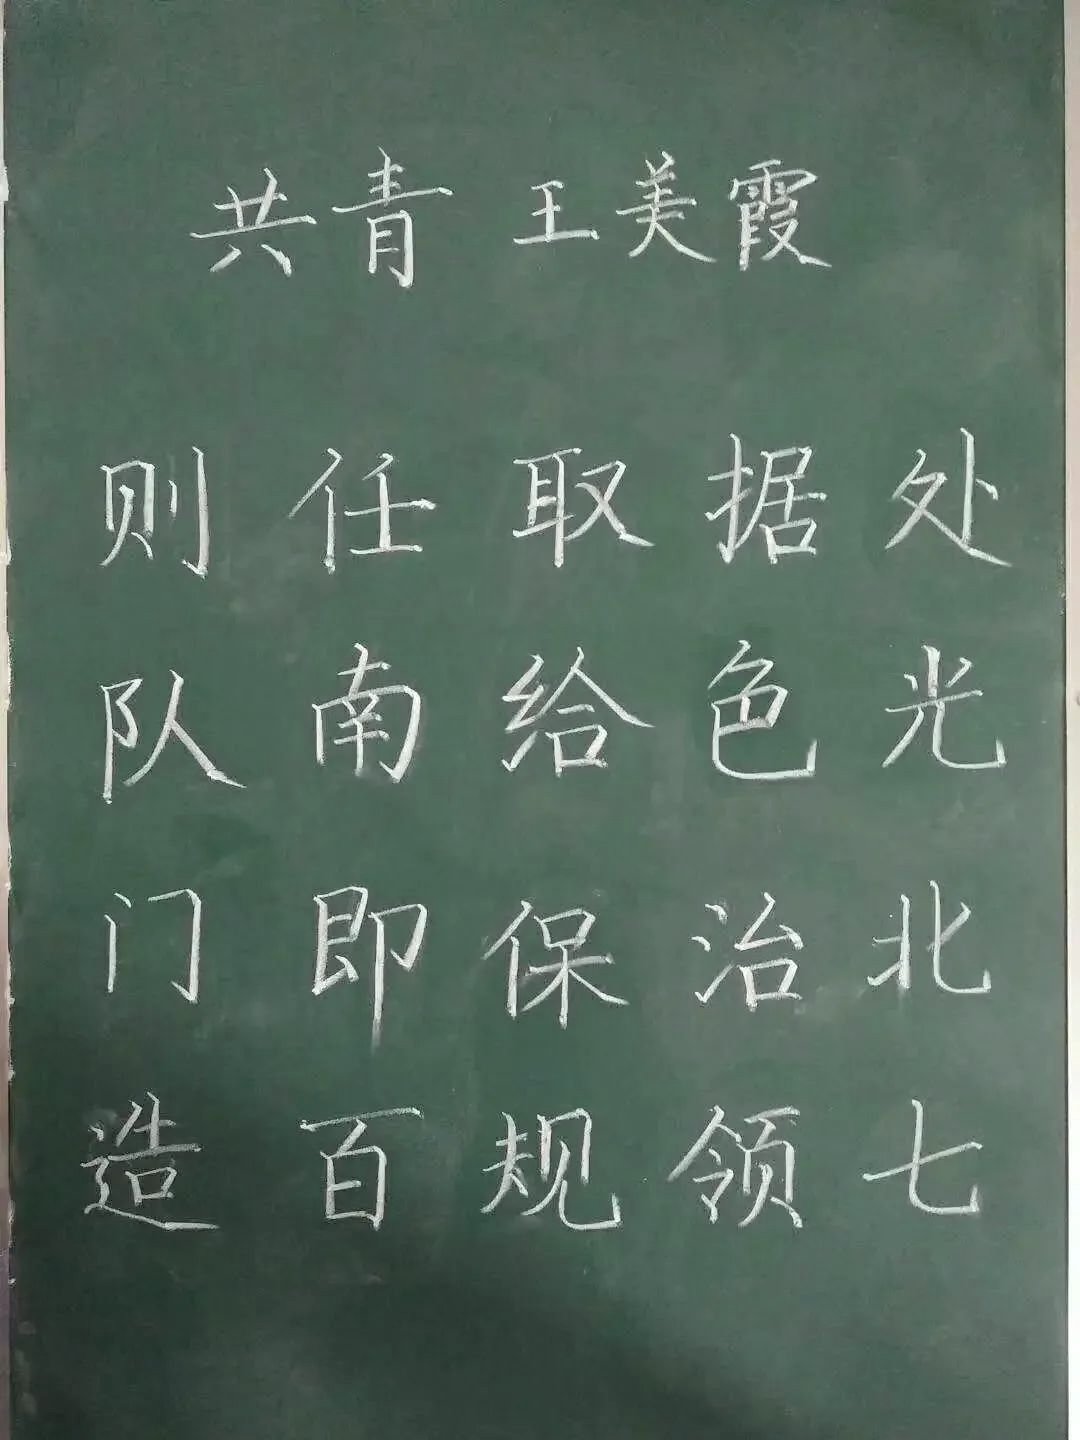 共青 王美霞
则 任 取 据 处
队 南 给 色 光
门 即 保 治 北
造 百 规 领 七